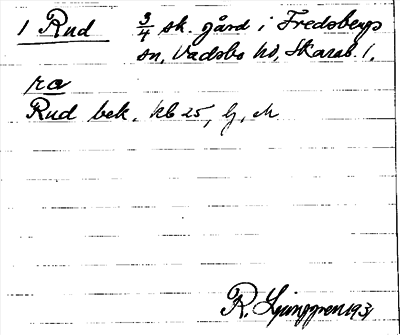 1 Rud 3/4 sk. gård i Fredsbergs
sn, Vadsbo hd, Skarab. l.
ra
Rud bek. kb 25, lj, ek
R. Ljunggren 1931